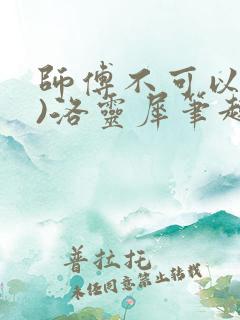 師傅不可以
)洛靈犀筆趣
普拉托
未经同意禁止转载